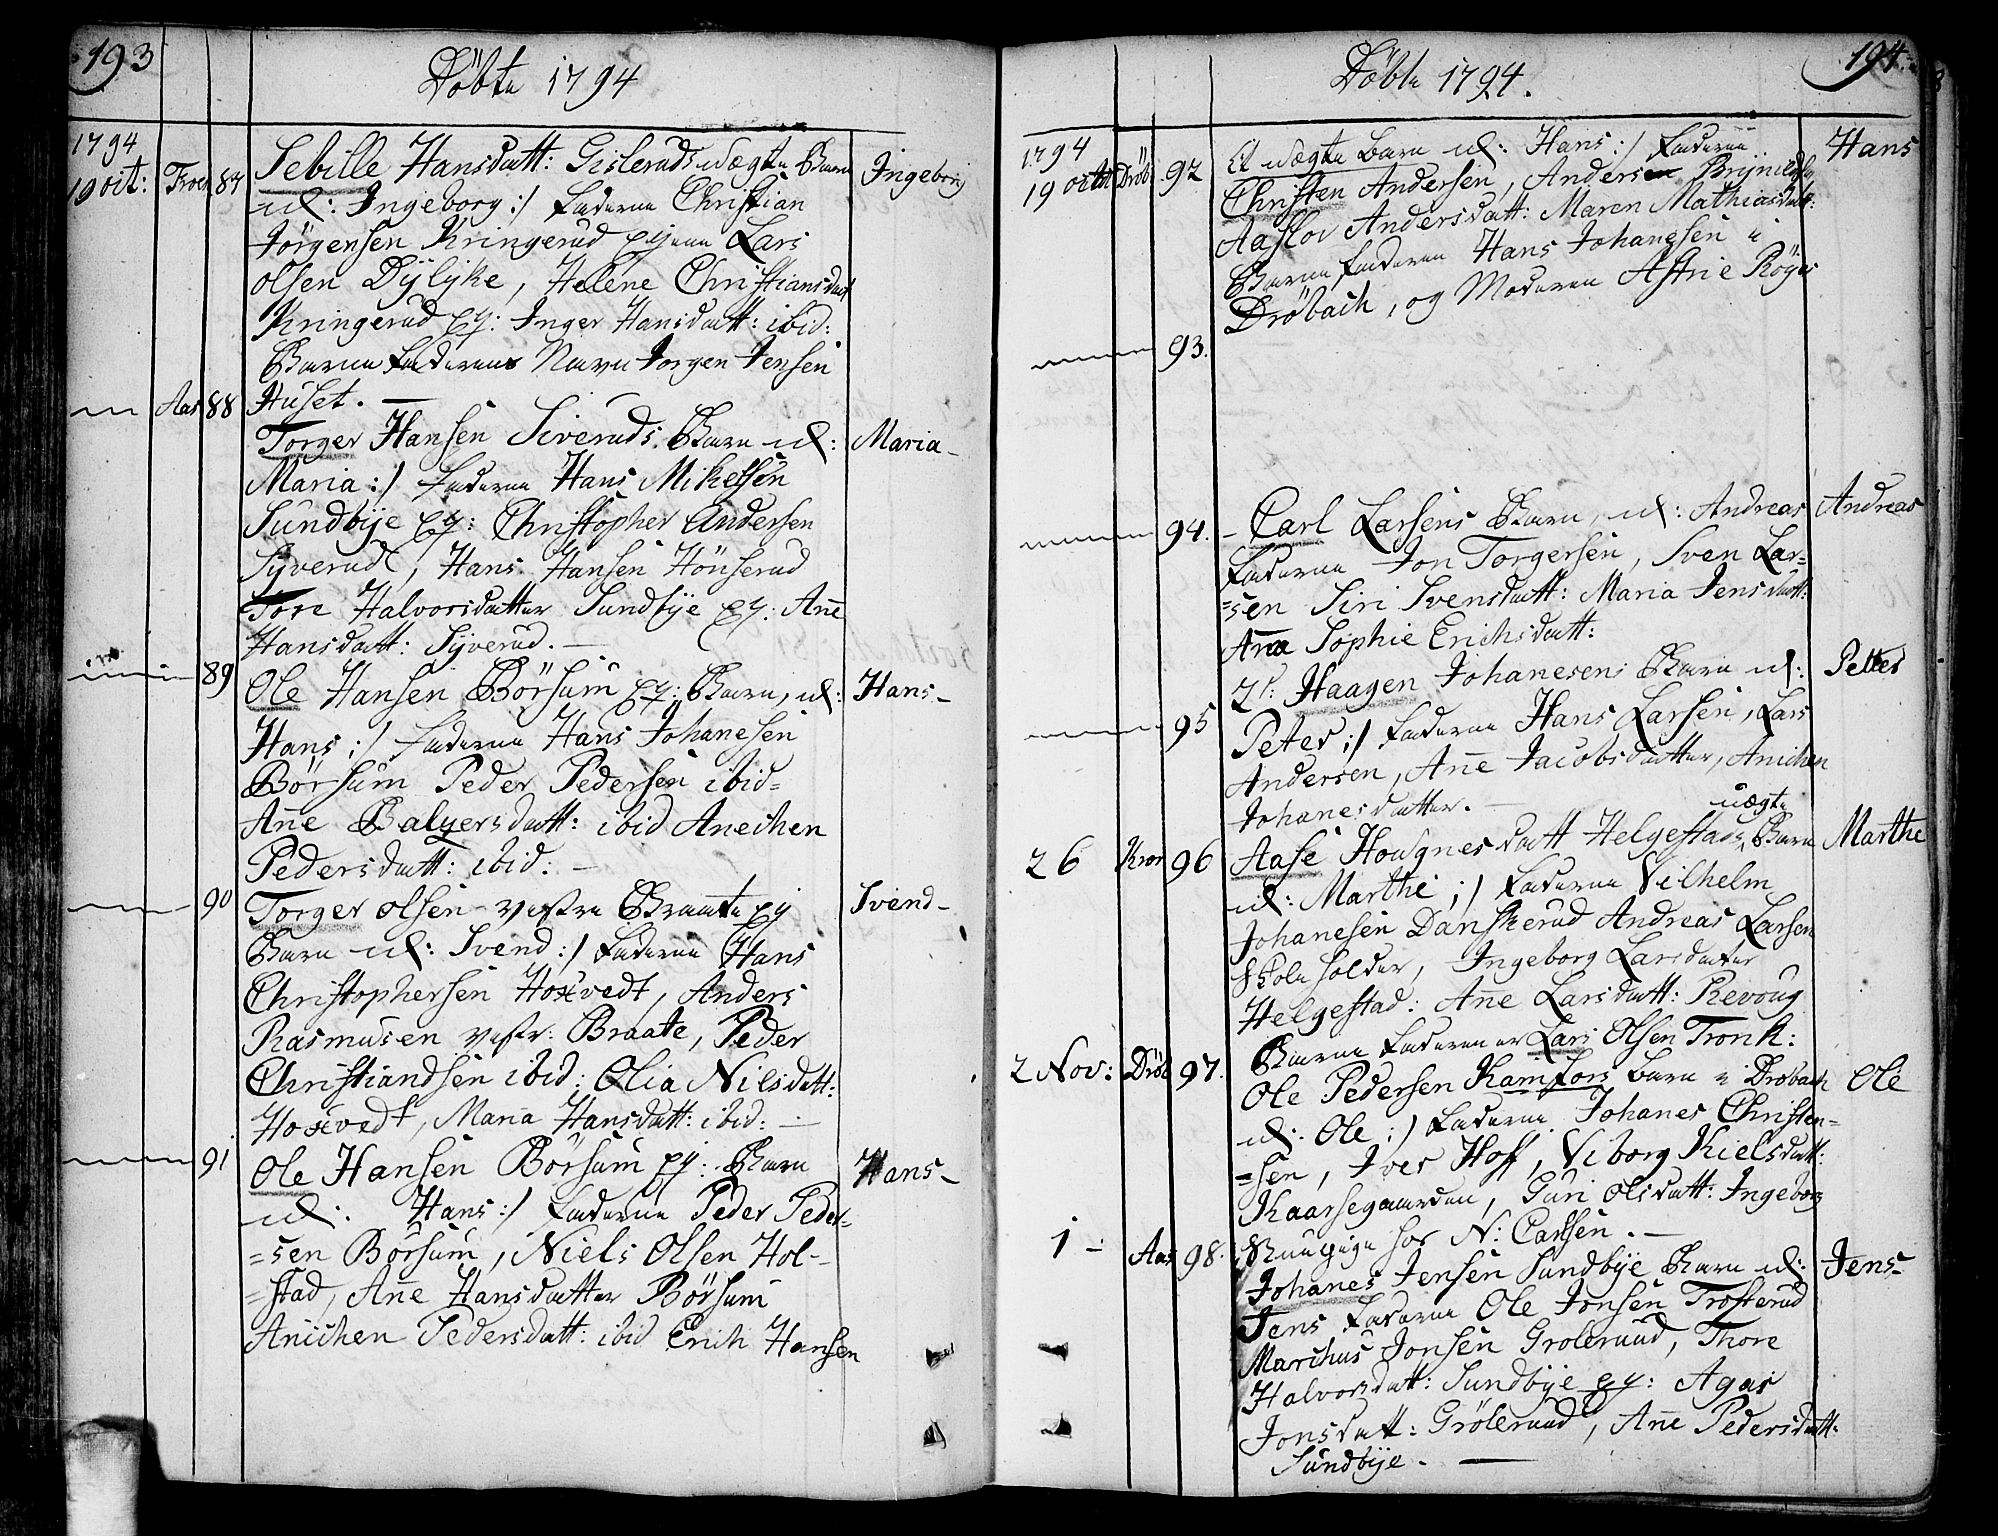 193
Döbte 1794
1794
19 oct: Froen 87 Sebille Hansdatt: Gislerud uægte Barn Ingeborg
nl: Ingeborg :/ Faderne Christian
Jørgensen Kringerud Lars
olsen Dÿlÿke, Helene Christiansdatt
Kringerud Ey: Inger Hansdatt: ibid:
Barne Faderens Navn Jorgen Jensen
Huset. —
Aas 88
Torger Hansen Siveruds Barn nl: Maria
Maria :/ Faderne Hans Mikelsen
Sundbÿe Ey: Christopher Andersen
Sÿverud, Hans Hansen Hönserud
Tore Halvorsdatter Sundbÿe Ey: Añe
Hansdatt: Sÿverud. —
89 Ole Hansen Börsum Ey: Barn, nl: Hans
Hans :/ Faderne Hans Johanesen
Börsum Peder Pedersen ibid
Añe Balzersdatt: ibid Anichen
Pedersdatt: ibid: —
90 Torger olsen vestre Braate Ey Svend
Barn nl: Svend :/ Faderne Hans
Christophersen Hoxvedt, Anders
Rasmusen vestr: Braate, Peder
Christiandsen ibid: Olia Nilsdatt:
Hoxvedt, Maria Hansdatt: ibid: —
91 Ole Hansen Börsum Ey: Barn Hans
nl: Hans :/ Faderne Peder Peder-
=sen Börsum, Niels Olsen Hol-
=stad, Añe Hansdatter Börsum
Anichen Pedersdatt: ibid Erich Hansen
194
Döbte 1794.
1794
19 octb Dröb 92 Et uægte Barn nl: Hans :/ Faderne Hans
Christen Andersen, Anders Brÿnildsen
Aaslov Andersdatt: Maren Mathiasdatt:
Barne Faderen Hans Johanesen i
Dröbach, og Moderen Astrie Röyes
93.
94. - Carl Larsens Barn, nl: Andreas Andreas
Faderne Jon Torgersen, Sven Lar=
=sen Siri Svensdatt: Maria Jensdatt:
Anna Sophie Erichsdatt:
95 Haagen Johanesens Barn nl: Petter
Peter :/ Faderne Hans Larsen, Lars
Andersen, Añe Jacobsdatter, Anichen
Johanesdatter. —
26 Kror 96 Aase Hougnesdatt Helgestads uægte Barn Marthe
nl: Marthe :/ Faderne Vilhelm
Johanesen Danskerud Andreas Larsen
Skoleholder, Ingeborg Larsdatter
Helgestad: Añe Larsdatt: Revoug
Barne Faderen er Lars Olsen Tronk:
2 Nov: Dröb 97. Ole Pedersen Kamfors Barn i Dröbach Ole
nl: Ole :/ Faderne Johanes Christen=
=sen, Iver Hoff, Viborg Kielsdatt:
Kaarsegaarden, Guri Olsdatt: Ingeborg
hos N: Carlsen. —
1 - Aas 98. Johanes Jensen Sundbÿe Barn nl: Jens
Jens Faderne Ole Jonsen Trosterud
Marchus Jonsen Grolerud, Thore
Halvorsdatt: Sundbÿe Ey: Agas
Jonsdatt: Grölerud, Añe Pedersdatt:
Sundbÿe. —